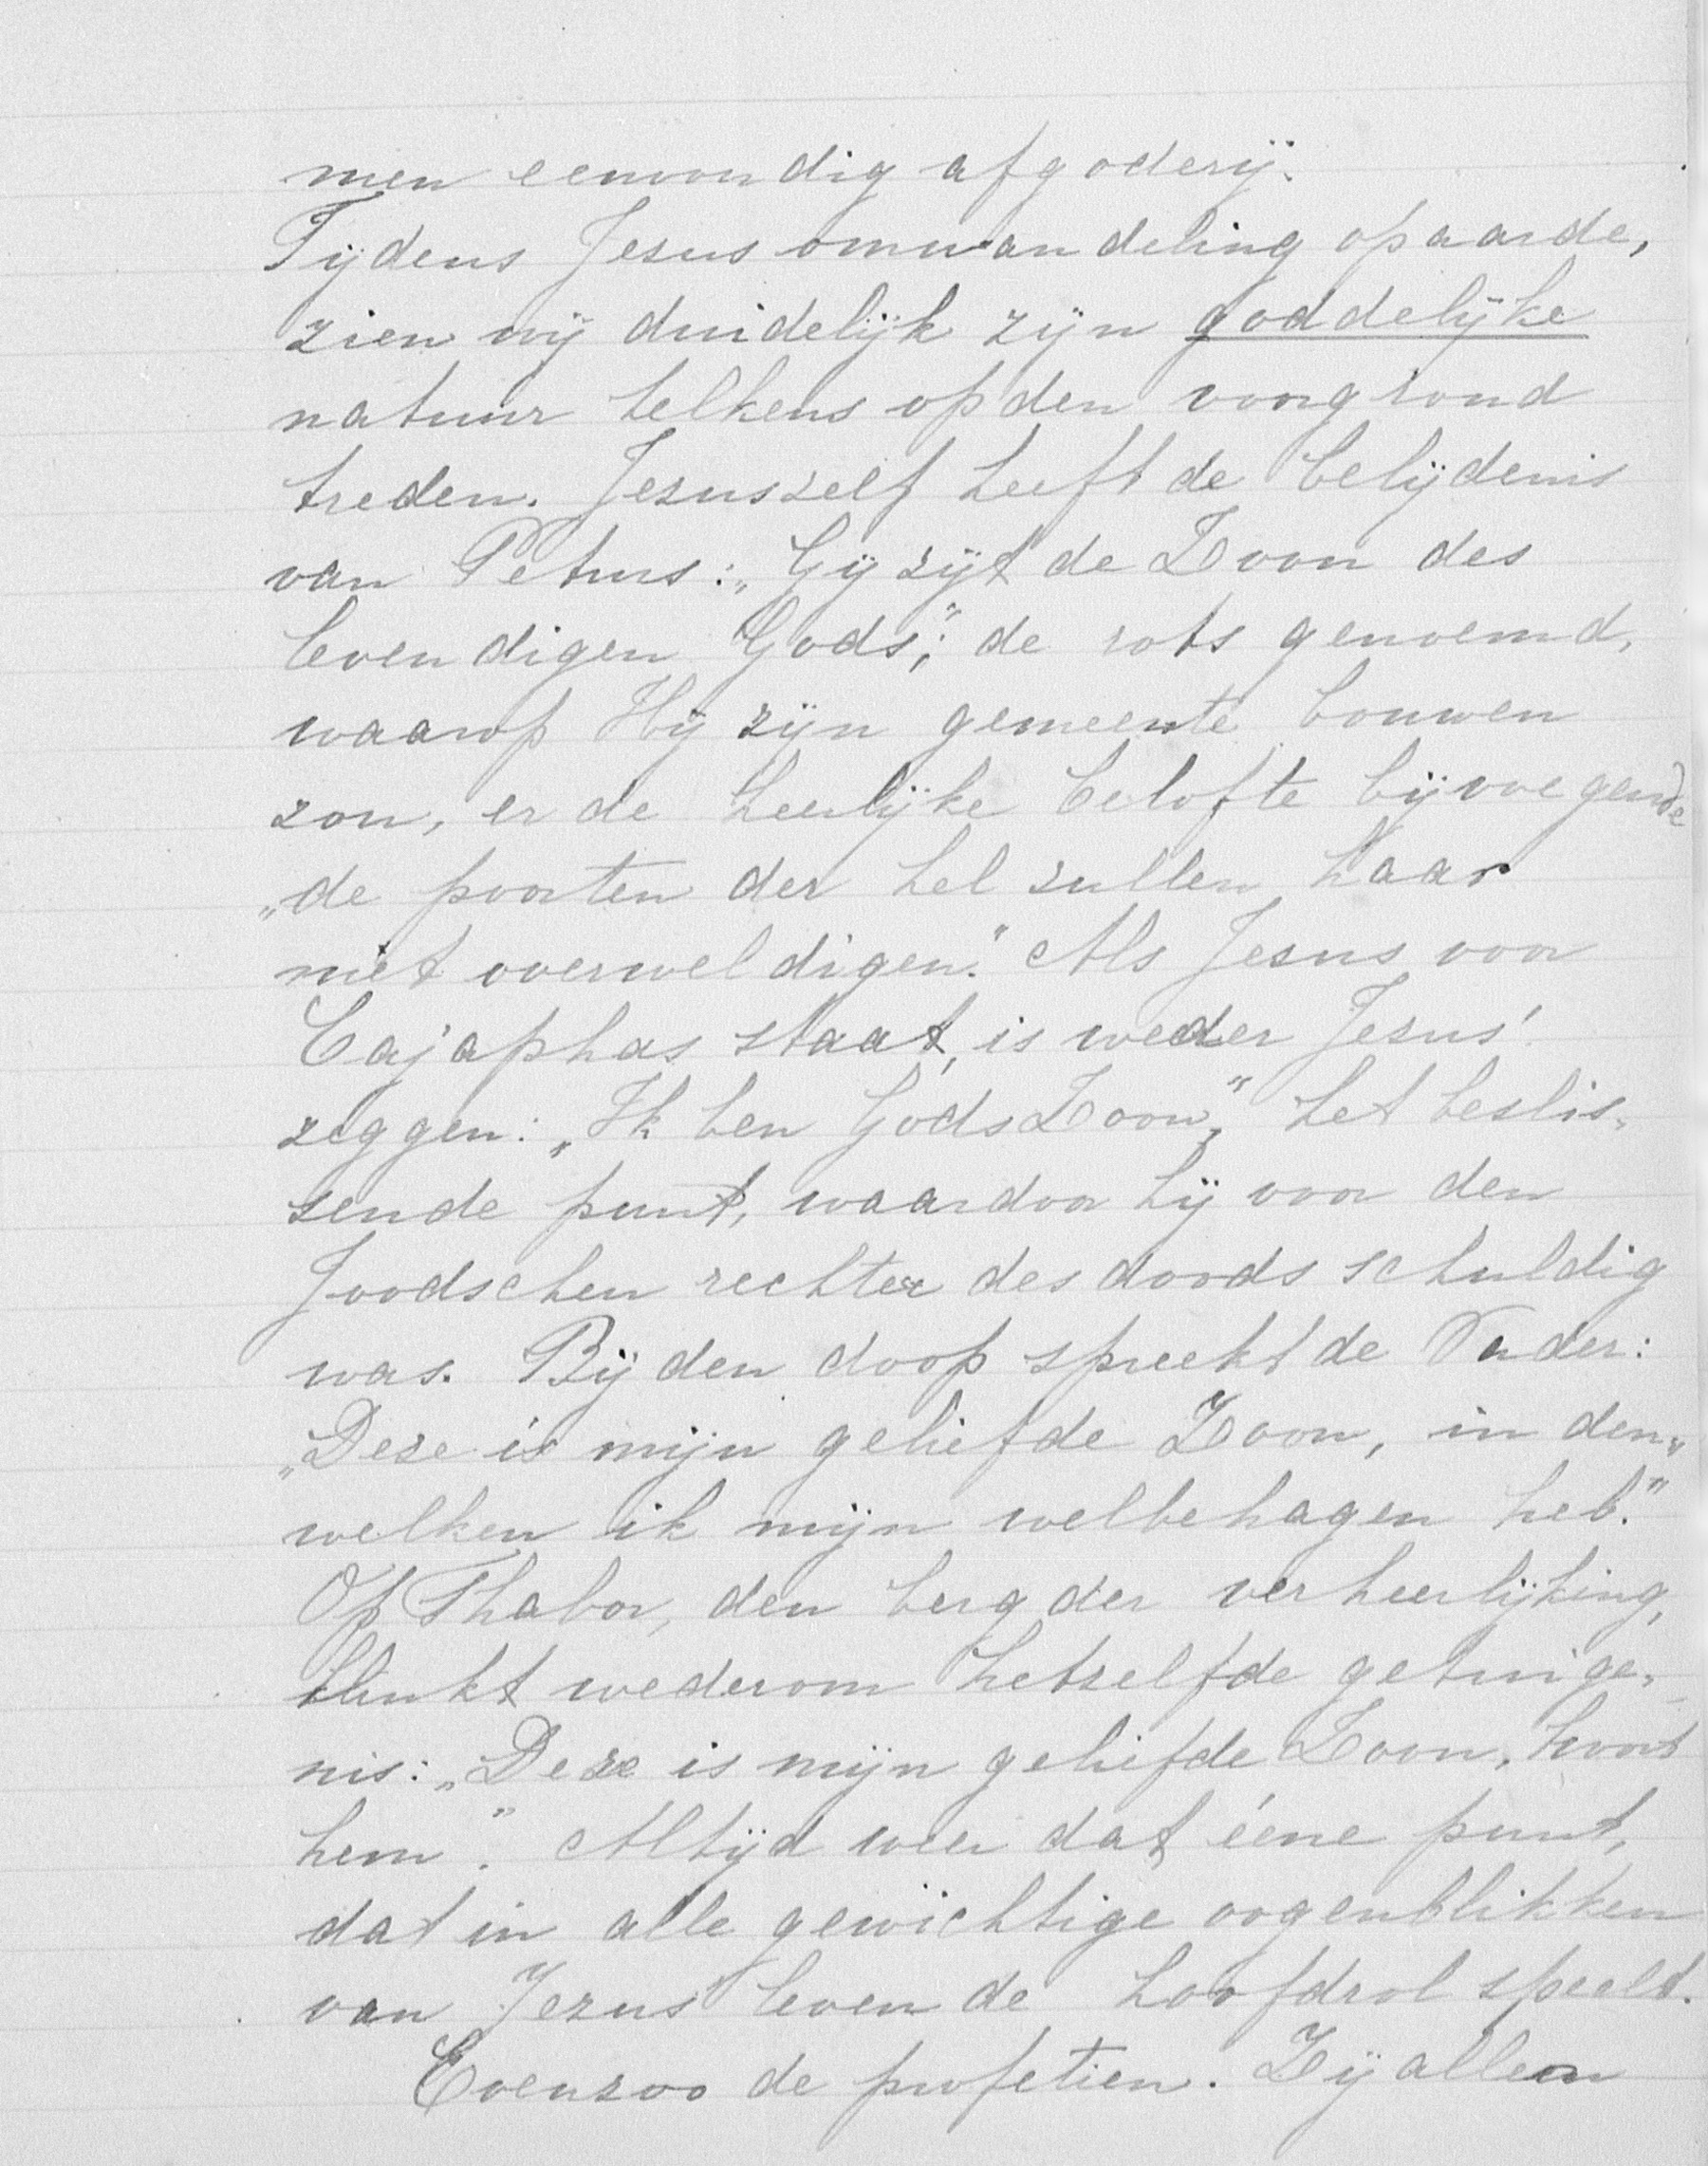 men eenvoudig afgoderij.
Tijdens Jezus omwandeling op aarde,
zien wij duidelijk zijn goddelijke
natuur telkens op den voorgrond
treden. Jezus zelf heeft de belijdenis
van Petrus: „Gij zijt de Zoon des
levendigen Gods”; de rots genoemd,
waarop Hij zijn gemeente bouwen
zou, er de heerlijke belofte bijvoegende
„de poorten der hel zullen haar
niet overweldigen.” Als Jezus voor
Cajaphas staat, is weder Jezus'
zeggen: „Ik ben Gods Zoon,” het beslis-
sende punt, waardoor hij voor den
Joodschen rechter des doods schuldig
was. Bij den doop spreekt de Vader:
„Deze is mijn geliefde Zoon, in den-
welken ik mijn welbehagen heb.”
Op Thabor, den berg der verheerlijking,
klinkt wederom hetzelfde getuige-
nis: „Deze is mijn geliefde Zoon, hoort
hem”. Altijd weer dat ééne punt,
dat in alle gewichtige oogenblikken
van Jezus' leven de hoofdrol speelt.
Evenzoo de profetien. Zij allen